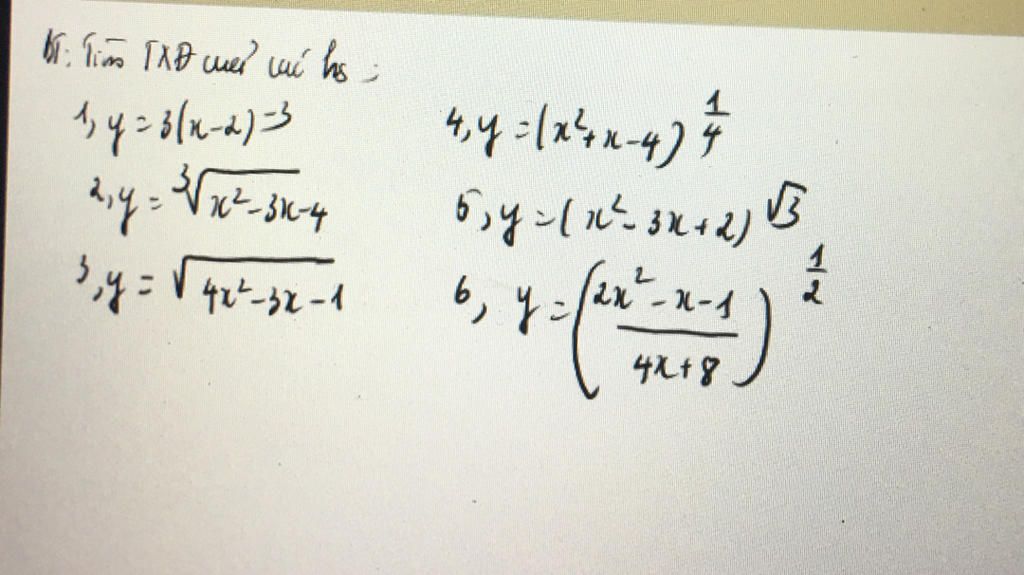 BT: Tìm TXĐ của các hs:
1, y = 3(x-2)^{-3}
2, y = \sqrt[3]{x^2-3x-4}
3, y = \sqrt{4x^2-3x-1}
4, y = (x^2+x-4)^{\frac{1}{4}}
5, y = (x^2-3x+2)^{\sqrt{3}}
6, y = \left(\frac{2x^2-x-1}{4x+8}\right)^{\frac{1}{2}}